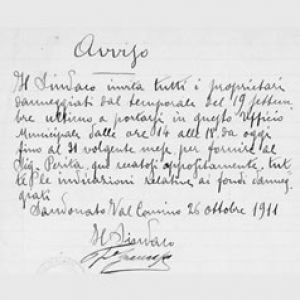 Avviso
Il Sindaco invita tutti i proprietari
danneggiati dal temporale del 19 settem
bre ultimo a portarsi in questo ufficio
Municipale dalle ore 14 alle 18 da oggi
fino al 31 volgente mese per fornire al
Sig. Perito, qui recatosi appositamente, tut
te le indicazioni relative ai fondi danneg
giati
Sandonato Val Comino 26 ottobre 1911
Il Sindaco